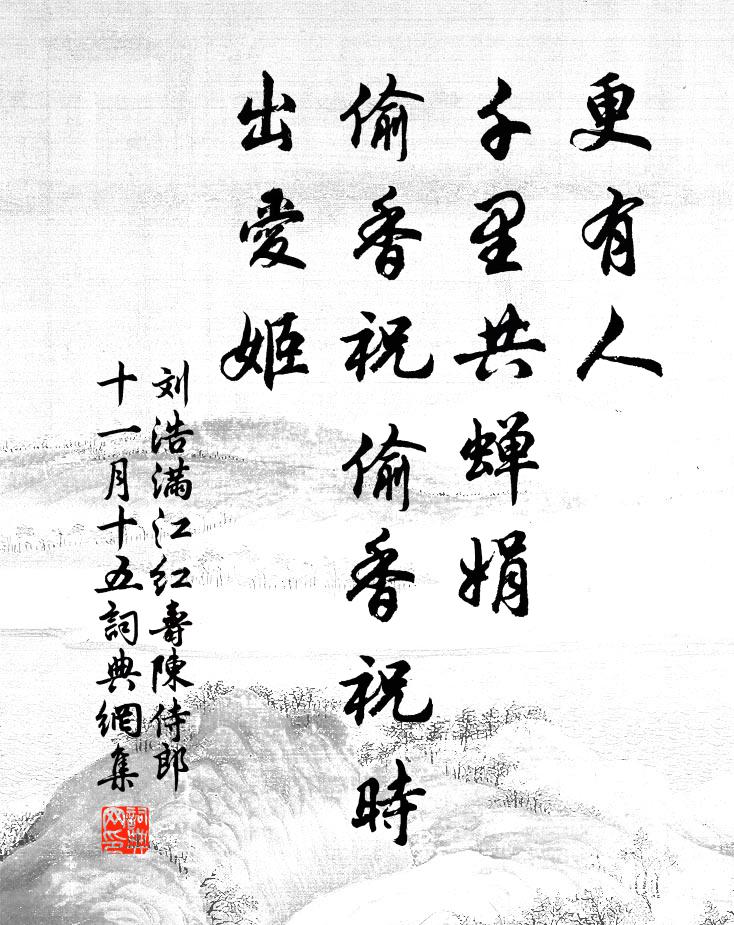 更有人
千里共蝉娟
偷香祝偷香祝時
出愛姬
刘浩满江红壽陳侍郎
十一月十五詞典網集
詞典
网印